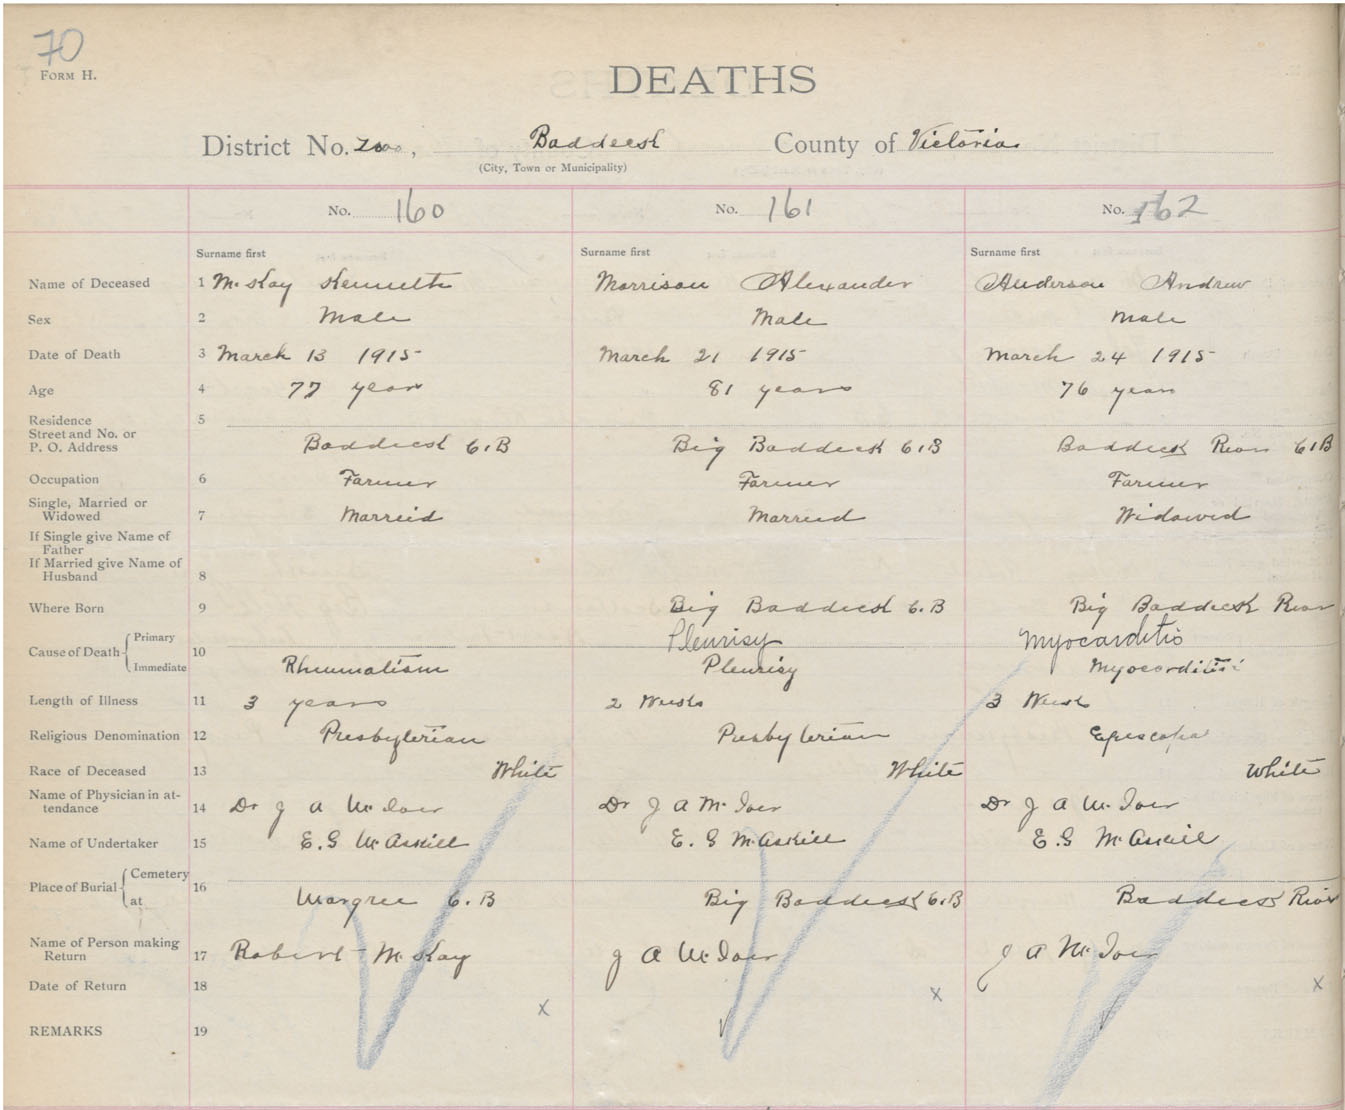 70
FORM H.
DEATHS
District No. 2000, Baddeck County of Victoria
(City, Town or Municipality)
No. 160 No. 161 No. 162
Surname first Surname first Surname first
Name of Deceased 1 McKay Kenneth Morrison Alexander Anderson Andrew
Sex 2 Male Male Male
Date of Death 3 March 13 1915 March 21 1915 March 24 1915
Age 4 77 years 81 years 76 years
Residence 5
Street and No. or
P. O. Address Baddeck C.B Big Baddeck C.B Baddeck River C.B
Occupation 6 Farmer Farmer Farmer
Single, Married or
Widowed 7 Married Married Widowed
If Single give Name of
Father
If Married give Name of
Husband 8
Where Born 9 Big Baddeck C.B Big Baddeck River
Cause of Death 10 Primary Pleurisy Myocarditis
Immediate Rheumatism Pleurisy Myocarditis
Length of Illness 11 3 years 2 Weeks 3 Weeks
Religious Denomination 12 Presbyterian Presbyterian
Race of Deceased 13 White White White
Name of Physician in at-
tendance 14 Dr J A McIver Dr J A McIver Dr J A McIver
Name of Undertaker 15 E.G McAskill E.G McAskill E.G McAskill
Place of Burial 16 Cemetery
at Margree C.B Big Baddeck C.B Baddeck River
Name of Person making
Return 17 Robert McKay J A McIver J A McIver
Date of Return 18 x x x
REMARKS 19